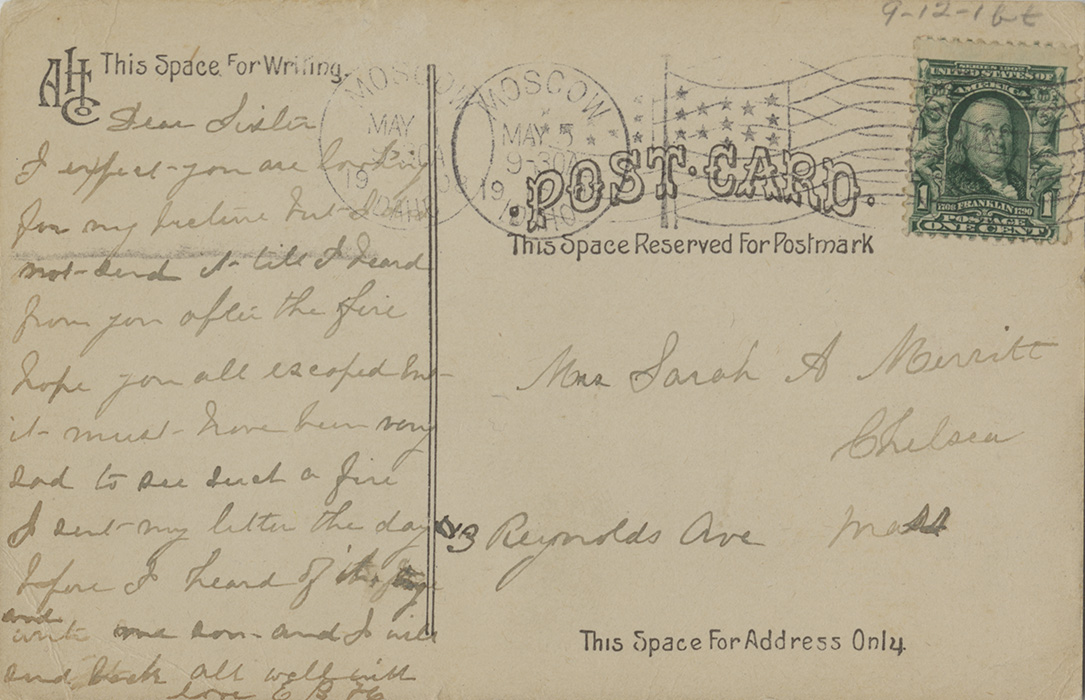 9-12-1
AHC
Co
This Space For Writing.
Dear Sister
I expect you are looking
for my picture but I did
not send it till I heard
from you after the fire
hope you all escaped but
it must have been very
sad to see such a fire
I sent my letter the day
before I heard of it
and
write me soon and I will
send back all well with
love E B H
MOSCOW
MAY
19
IDAHO
MOSCOW
MAY 5
9-30A
19
IDAHO
POST·CARD.
This Space Reserved For Postmark
SERIES 1902
UNITED STATES OF
AMERICA
1 FRANKLIN 1790 1
POSTAGE
ONE CENT
Mrs Sarah A Merritt
Chelsea
43 Reynolds Ave Mass
This Space For Address Only.